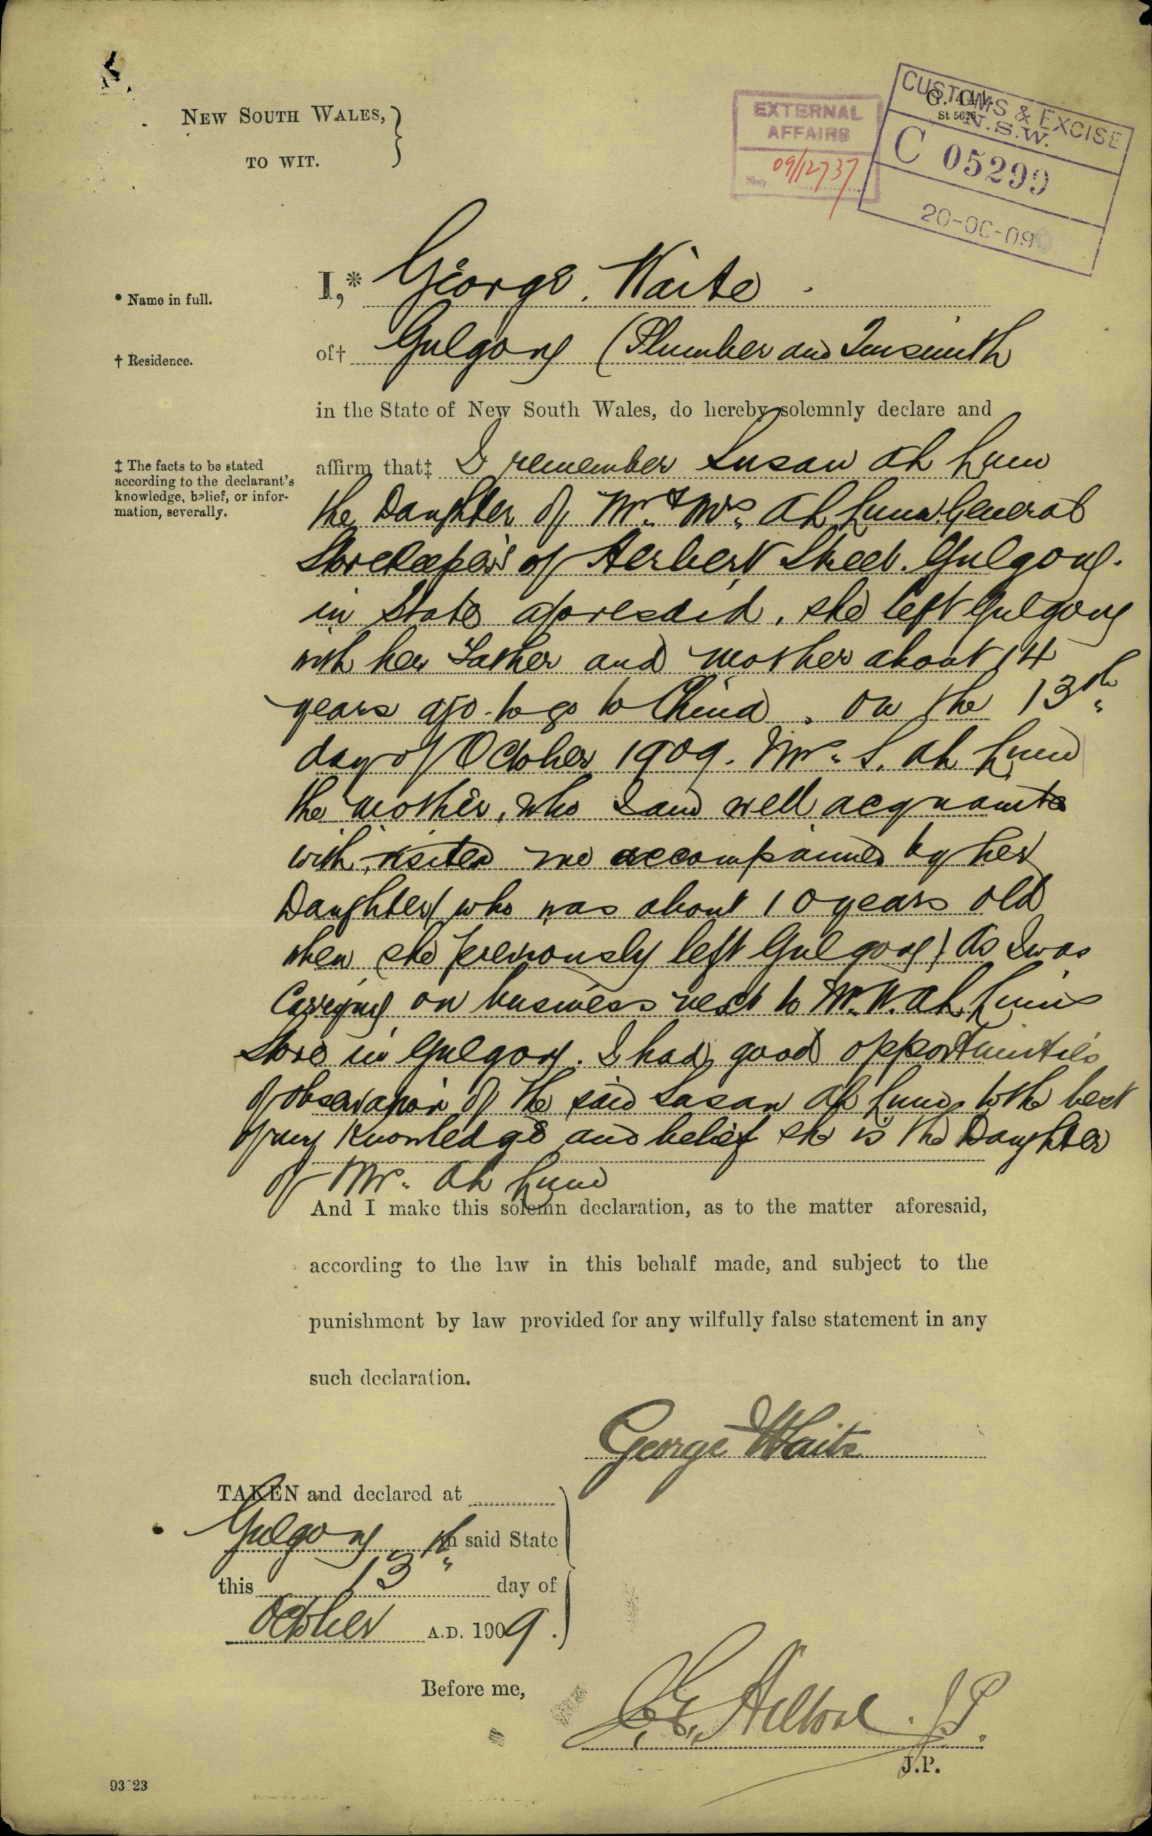 NEW SOUTH WALES,
TO WIT.
EXTERNAL
AFFAIRS
09/12737
CUSTOMS & EXCISE
N.S.W.
C 05299
20-OC-09
* Name in full.
I,* George Waite
† Residence.
of† Gulgong (Plumber and Tinsmith
in the State of New South Wales, do hereby solemnly declare and
‡ The facts to be stated
according to the declarant's
knowledge, belief, or infor-
mation, severally.
affirm that‡ I remember Susan Ah Lum
the Daughter of Mr. & Mrs. Ah Lum General
Storekeepers of Herbert Street. Gulgong.
in State aforesaid. she left Gulgong
with her Father and Mother about 14
years ago to go to China. on the 13th
day of October 1909. Mrs. S. Ah Lum
the mother, who I am well acquainte
with, visited me accompained by her
Daughter (who was about 10 years old
when she previously left Gulgong) As I was
Carrying on business next to Mr. W. Ah Lum's
Store in Gulgong. I had good opportunities
of observation of the said Susan Ah Lum, to the best
of my Knowledge and belief she is the Daughter
of Mrs. Ah Lum
And I make this solemn declaration, as to the matter aforesaid,
according to the law in this behalf made, and subject to the
punishment by law provided for any wilfully false statement in any
such declaration.
George Waite
TAKEN and declared at
Gulgong in said State
this 13th day of
October A.D. 1909.
Before me,
J.P.
J.P.
93 23